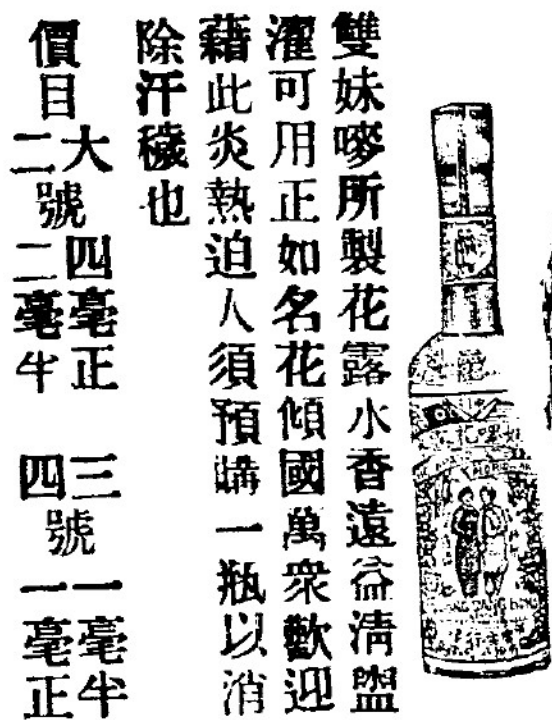 雙妹嘜所製花露水香遠益清盥
濯可用正如名花傾國萬衆歡迎
藉此炎熱迫人須預購一瓶以消
除汗穢也
價目
大 四毫正 三 一毫半
號 號
二 二毫半 四 一毫正